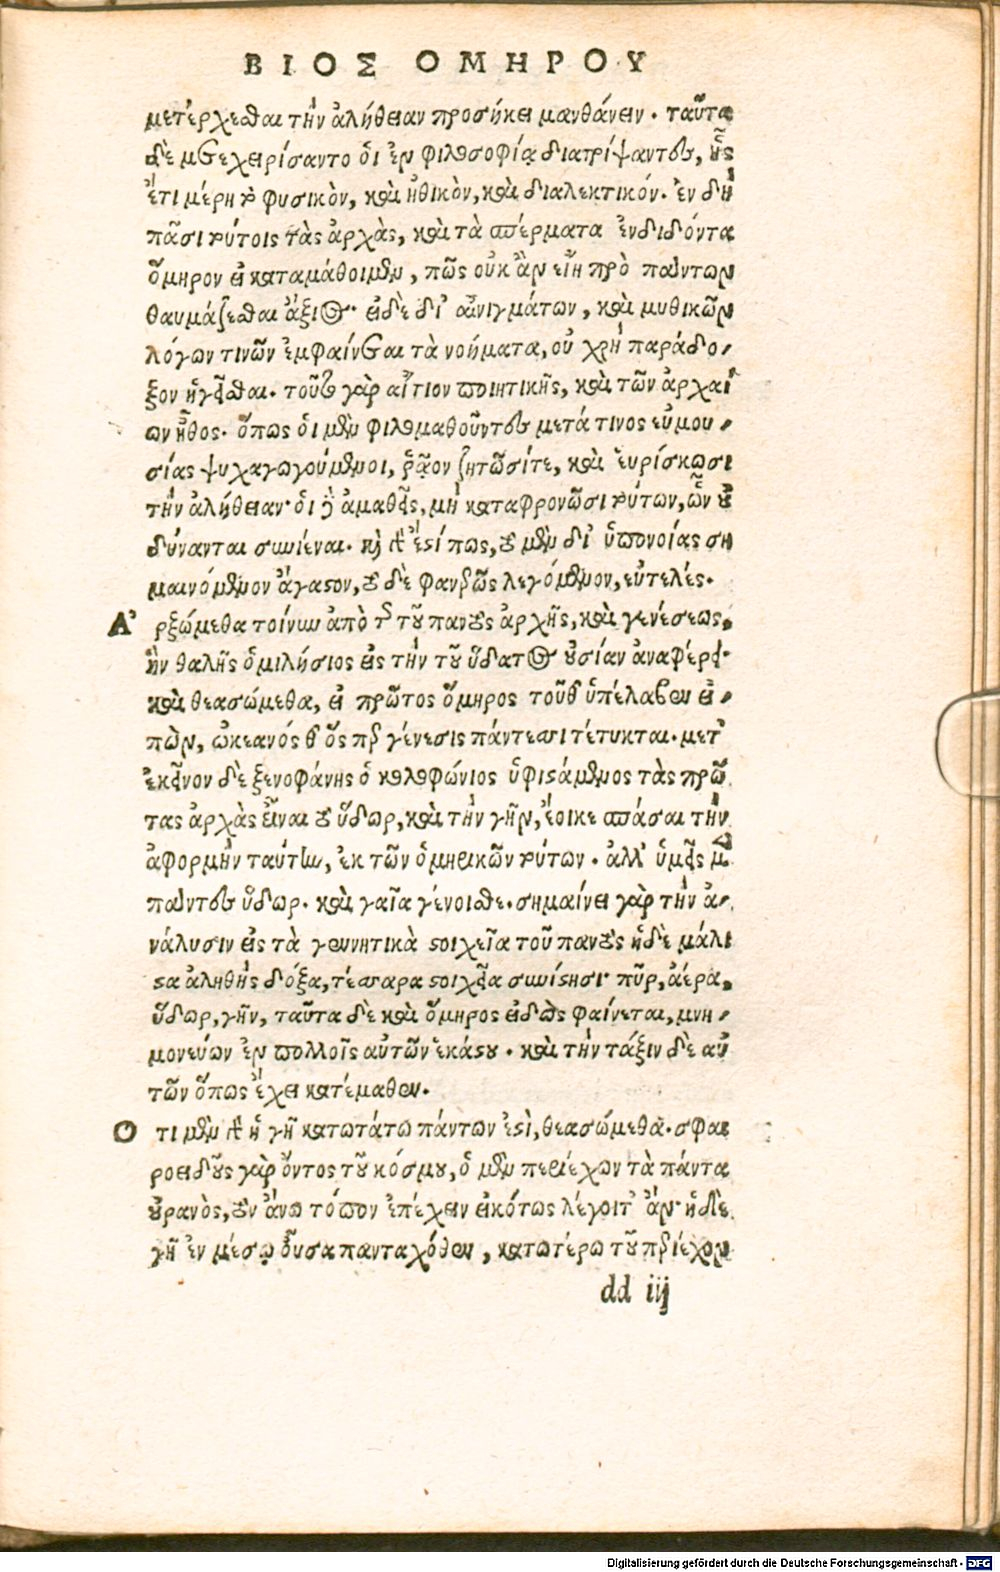 ΒΙΟΣ ΟΜΗΡΟΥ
μετέρχεσθαι τὴν ἀλήθειαν προσήκει μανθάνειν. ταῦτα
δὲ μετεχειρίσαντο ὁι ἐν φιλοσοφίᾳ διατρίψαντες, ἧς
ἔτι μέρη τὸ φυσικὸν, καὶ ἠθικὸν, καὶ διαλεκτικόν. ἐν δὴ
πᾶσι τούτοις τὰς ἀρχὰς, καὶ τὰ σπέρματα ἐνδιδόντα
ὅμηρον εἰ καταμάθοιμεν, πῶς οὐκ ἂν εἴη πρὸ πάντων
θαυμάζεσθαι ἄξιος· εἰ δὲ δι' αἰνιγμάτων, καὶ μυθικῶν
λόγων τινῶν ἐμφαίνεται τὰ νοήματα, οὐ χρὴ παράδο-
ξον ἡγεῖσθαι. τοῦτο γὰρ αἴτιον ποιητικῆς, καὶ τῶν ἀρχαί
ων ἦθος. ὅπως ὁι μὲν φιλομαθοῦντες μετά τινος εὐμου-
σίας ψυχαγωγούμενοι, ῥᾷον ζητῶσίτε, καὶ ἑυρίσκωσι
τὴν ἀλήθειαν· ὁι δὲ ἀμαθεῖς, μὴ καταφρονῶσι τούτων, ὧν οὐ
δύνανται συνιέναι. καὶ γὰρ ἐστί πως, τὸ μὲν δι' ὑπονοίας ση
μαινόμενον ἄγαστον, τὸ δὲ φανερῶς λεγόμενον, εὐτελές.
Ἀρξώμεθα τοίνυν ἀπὸ τῆς τοῦ παντὸς ἀρχῆς, καὶ γενέσεως,
ἣν θαλῆς ὁ μιλήσιος εἰς τὴν τοῦ ὕδατος οὐσίαν ἀναφέρει·
καὶ θεασώμεθα, εἰ πρῶτος ὅμηρος τοῦθ' ὑπέλαβεν εἰ-
πὼν, ὠκεανός θ' ὅς περ γένεσις πάντεσσι τέτυκται. μετ'
ἐκεῖνον δὲ ξενοφάνης ὁ κολοφώνιος ὑφιστάμενος τὰς πρώ
τας ἀρχὰς εἶναι τὸ ὕδωρ, καὶ τὴν γῆν, ἔοικε σπάσαι τὴν
ἀφορμὴν ταύτην, ἐκ τῶν ὁμηρικῶν τούτων. ἀλλ' ὑμεῖς μὲν
πάντες ὕδωρ. καὶ γαῖα γένοισθε. σημαίνει γὰρ τὴν ἀ-
νάλυσιν εἰς τὰ γεννητικὰ στοιχεῖα τοῦ παντὸς ἡ δὲ μάλι
στα ἀληθὴς δόξα, τέσσαρα στοιχεῖα συνίστησι· πῦρ, ἀέρα,
ὕδωρ, γῆν, ταῦτα δὲ καὶ ὅμηρος εἰδὼς φαίνεται, μνη-
μονεύων ἐν πολλοῖς αὐτῶν ἑκάστου. καὶ τὴν τάξιν δὲ αὐ
τῶν ὅπως ἔχει κατέμαθεν.
Ὅτι μὲν γὰρ ἡ γῆ κατωτάτω πάντων ἐστὶ, θεασώμεθα. σφαι
ροειδοῦς γὰρ ὄντος τοῦ κόσμου, ὁ μὲν περιέχων τὰ πάντα
οὐρανὸς, τὸν ἄνω τόπον ἐπέχειν εἰκότως λέγοιτ' ἄν· ἡ δὲ
γῆ ἐν μέσῳ οὖσα πανταχόθεν, κατωτέρω τοῦ περιέχον
dd iij
Digitalisierung gefördert durch die Deutsche Forschungsgemeinschaft · DFG